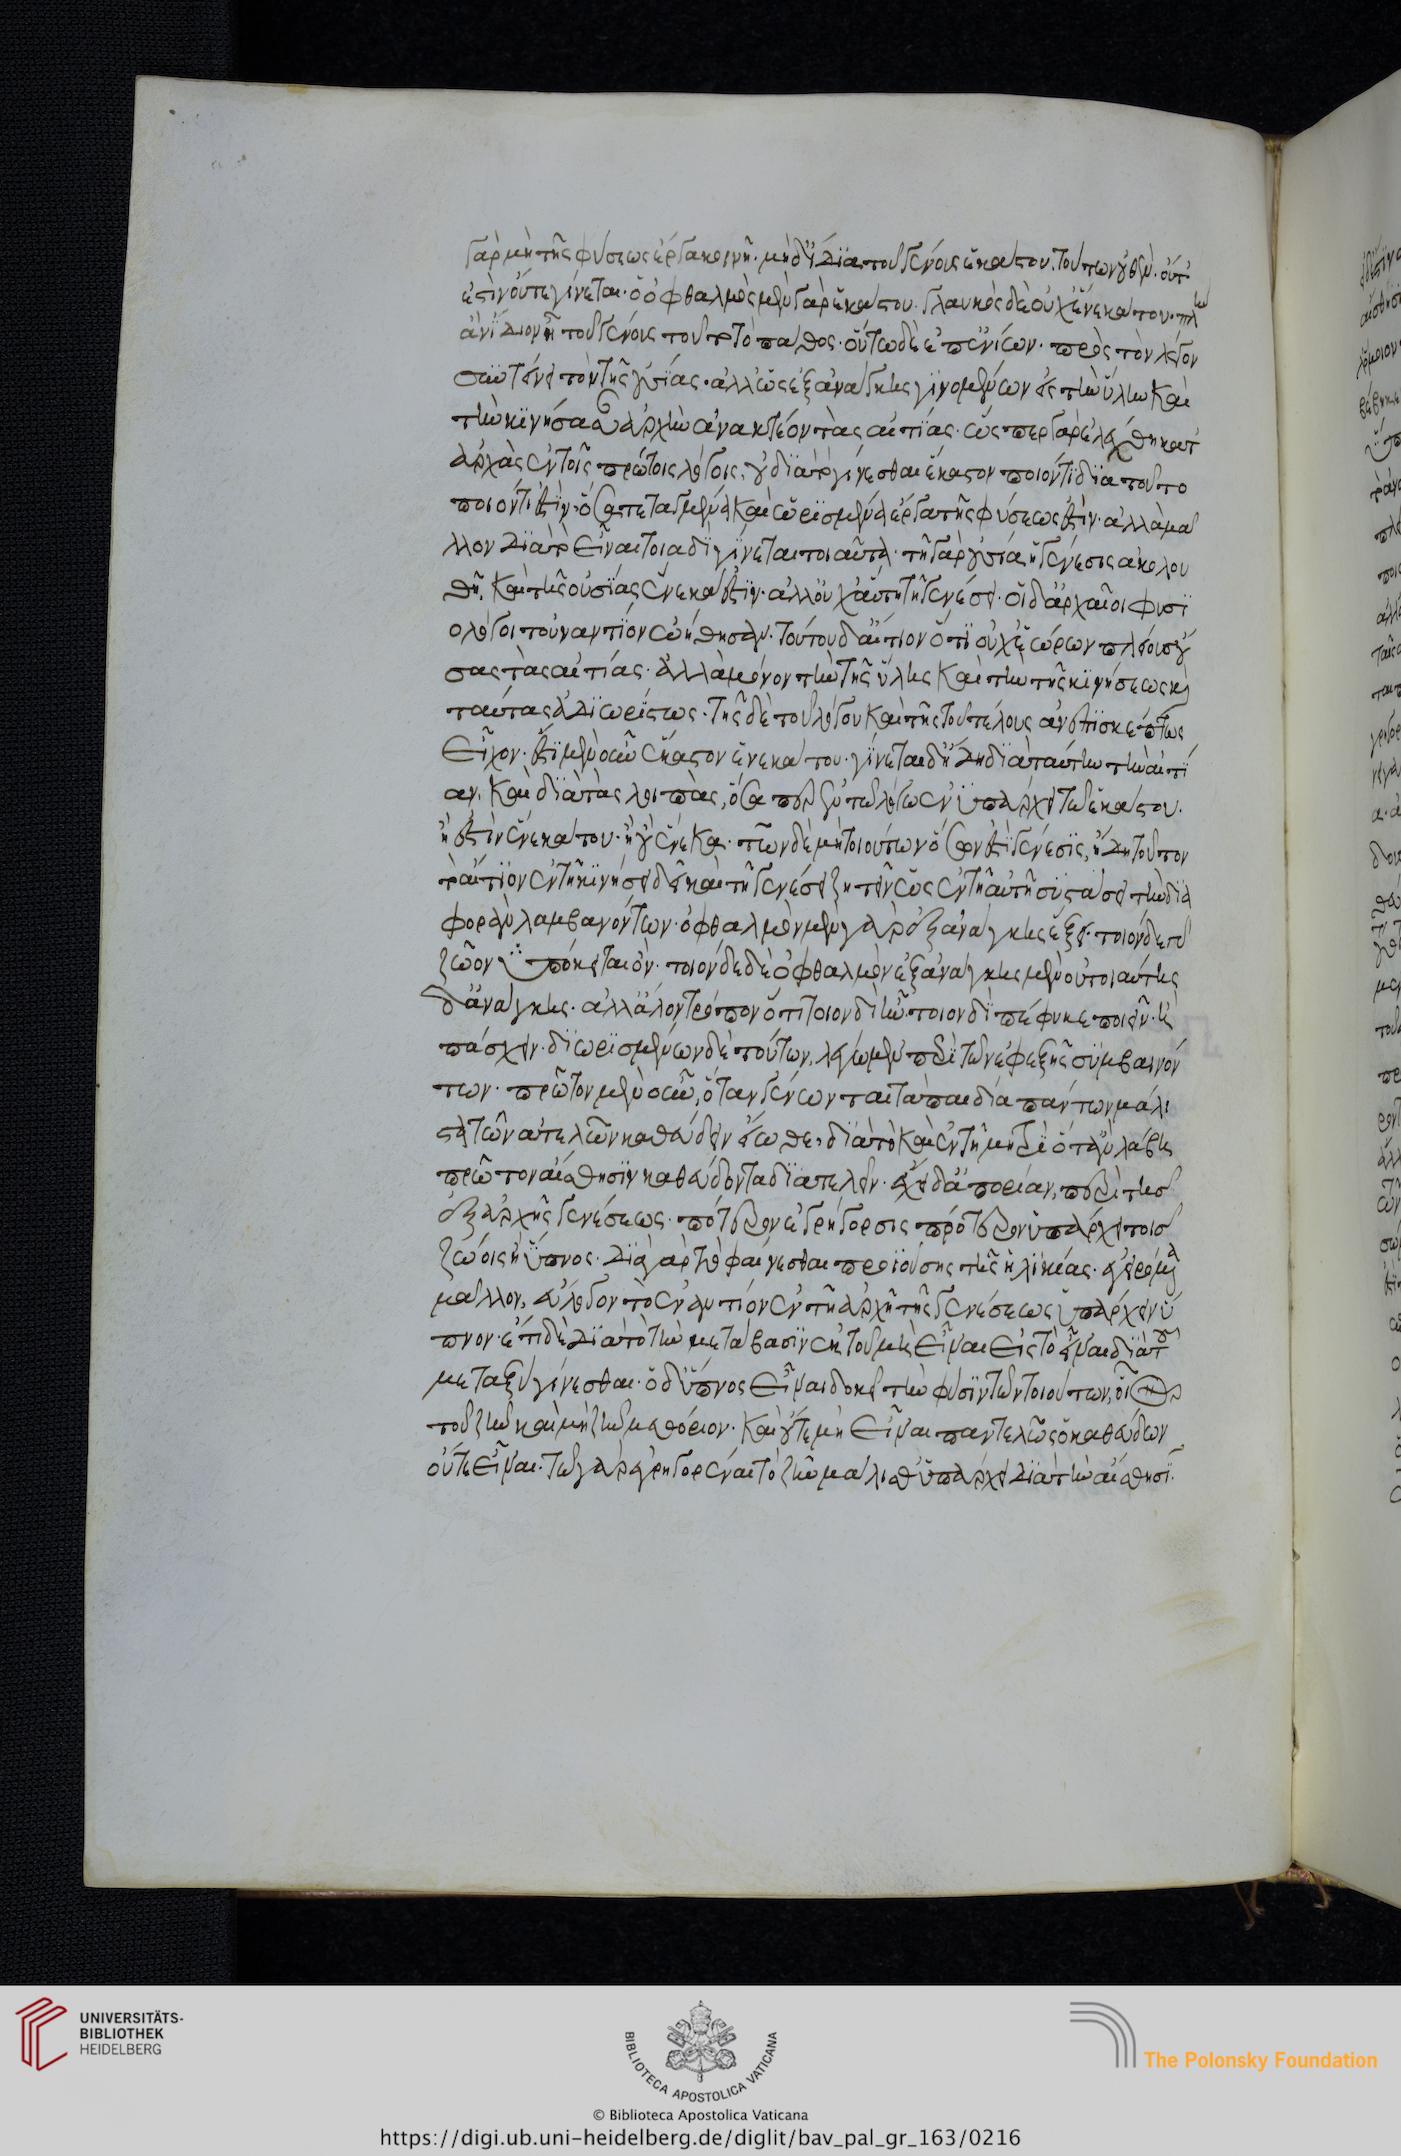 γὰρ μὴ τῆς φύσεως ἔργα κοινῆ· μηδ' ἴδια τοῦ γένους ἑκάστου. τούτων οὐθὲν· οὔτ'
ἐστὶν οὔτε γίνεται· ὁ ὀφθαλμὸς μὲν γὰρ ἕνεκά του· γλαυκὸς δὲ οὐχ ἕνεκά του· πλὴν
ἂν ἴδιον ἦ τοῦ γένους τοῦτο τὸ πάθος· οὔτω δὲ ἐπ' ἐνίων· πρὸς τὸν λόγον
συντείνει τὸν τῆς οὐσίας· ἀλλ' ὡς ἐξ ἀνάγκης γινομένων εἰς τὴν ὕλην καὶ
τὴν κινήσασαν ἀρχὴν ἀνακτέον τὰς αἰτίας· ὥσπερ γὰρ ἐλέχθη κατ'
ἀρχὰς ἐν τοῖς πρώτοις λόγοις, οὐ διὰ τὸ γίνεσθαι ἕκαστον ποιόν τι διὰ τοῦτο
ποιόν τι ἐστὶν· ὅσα τεταγμένα καὶ ὡρισμένα ἔργα τῆς φύσεως ἐστὶν· ἀλλὰ μᾶ
λλον διὰ τὸ εἶναι τοιαδὶ γίνεται τοιαῦτα· τῆ γὰρ οὐσία ἡ γένεσις ἀκολου
θεῖ, καὶ τῆς οὐσίας ἕνεκά ἐστιν· ἀλλ' οὐχ αὕτη τῆ γενέσει· οἱ δ' ἀρχαῖοι φυσι
ολόγοι τοὐναντίον ὠήθησαν· τούτου δ' αἴτιον ὅτι οὐχ ἑώρων πλείους οὔ
σας τὰς αἰτίας· ἀλλὰ μόνον τὴν τῆς ὕλης καὶ τὴν τῆς κινήσεως καὶ
ταύτας ἀδιωρίστως· τῆς δὲ τοῦ λόγου καὶ τῆς τοῦ τέλους ἀνεπισκέπτως
εἶχον· ἔστι μὲν οὖν ἕκαστον ἕνεκά του· γίνεται δ' ἤδη διὰ ταύτην τὴν αἰτί
αν, καὶ διὰ τὰς λοιπὰς, ὅσα περ ἐν τῶ λόγω ἐνυπάρχει τῶ ἑκάστου·
ἢ ἐστὶν ἕνεκά του· ἢ οὗ ἕνεκα· τῶν δὲ μὴ τοιούτων ὅσων ἐστὶ γένεσις, ἤδη τούτων
τὸ αἴτιον ἐν τῆ κινήσει δεῖ καὶ τῆ γενέσει ζητεῖν ὡς ἐν τῆ αὐτῆ συστάσει τὴν δια
φορὰν λαμβανόντων· ὀφθαλμὸν μὲν γὰρ ἐξ ἀνάγκης ἕξει· τοιόνδε γὰρ
ζῶον ὑπόκειται ὄν· τοιόνδε δὲ ὀφθαλμὸν ἐξ ἀνάγκης μὲν οὐ τοιαύτης
δ' ἀνάγκης· ἀλλ' ἄλλον τρόπον ὅτι τοιονδὶ ἢ τοιονδὶ πέφυκε ποιεῖν· καὶ
πάσχειν· διωρισμένων δὲ τούτων, λέγωμεν περὶ τῶν ἐφεξῆς συμβαινόν
των· πρῶτον μὲν οὖν, ὅταν γένωνται τὰ παιδία πάντων μάλι
στα τῶν ἀτελῶν καθεύδειν εἴωθε, διὰ τὸ καὶ ἐν τῆ μητρὶ ὅταν λάβη
πρῶτον αἴσθησιν καθεύδοντα διατελεῖν· ἔχει δ' ἀπορίαν, περὶ τῆς
ἐξ ἀρχῆς γενέσεως· πότερον ἐγρήγορσις πρότερον ὑπάρχει τοῖς
ζώοις ἢ ὕπνος· διὰ γὰρ τὸ φαίνεσθαι προϊούσης τῆς ἡλικίας· ἐγειρόμενα
μᾶλλον, εὔλογον τὸ ἐναντίον ἐν τῆ ἀρχῆ τῆς γενέσεως ὑπάρχειν ὕ
πνον· ἔτι δὲ διὰ τὸ τὴν μετάβασιν ἐκ τοῦ μὴ εἶναι εἰς τὸ εἶναι διὰ τοῦ
μεταξὺ γίνεσθαι· ὁ δ' ὕπνος εἶναι δοκεῖ τὴν φύσιν τῶν τοιούτων, οἷον
τοῦ ζῆν καὶ μὴ ζῆν μεθόριον· καὶ οὔτε μὴ εἶναι παντελῶς ὁ καθεύδων
οὔτε εἶναι· τῶ γὰρ ἐγρηγορέναι τὸ ζῆν μάλισθ' ὑπάρχει διὰ τὴν αἴσθησι·
UNIVERSITÄTS-
BIBLIOTHEK
HEIDELBERG
BIBLIOTECA APOSTOLICA VATICANA
The Polonsky Foundation
© Biblioteca Apostolica Vaticana
https://digi.ub.uni-heidelberg.de/diglit/bav_pal_gr_163/0216